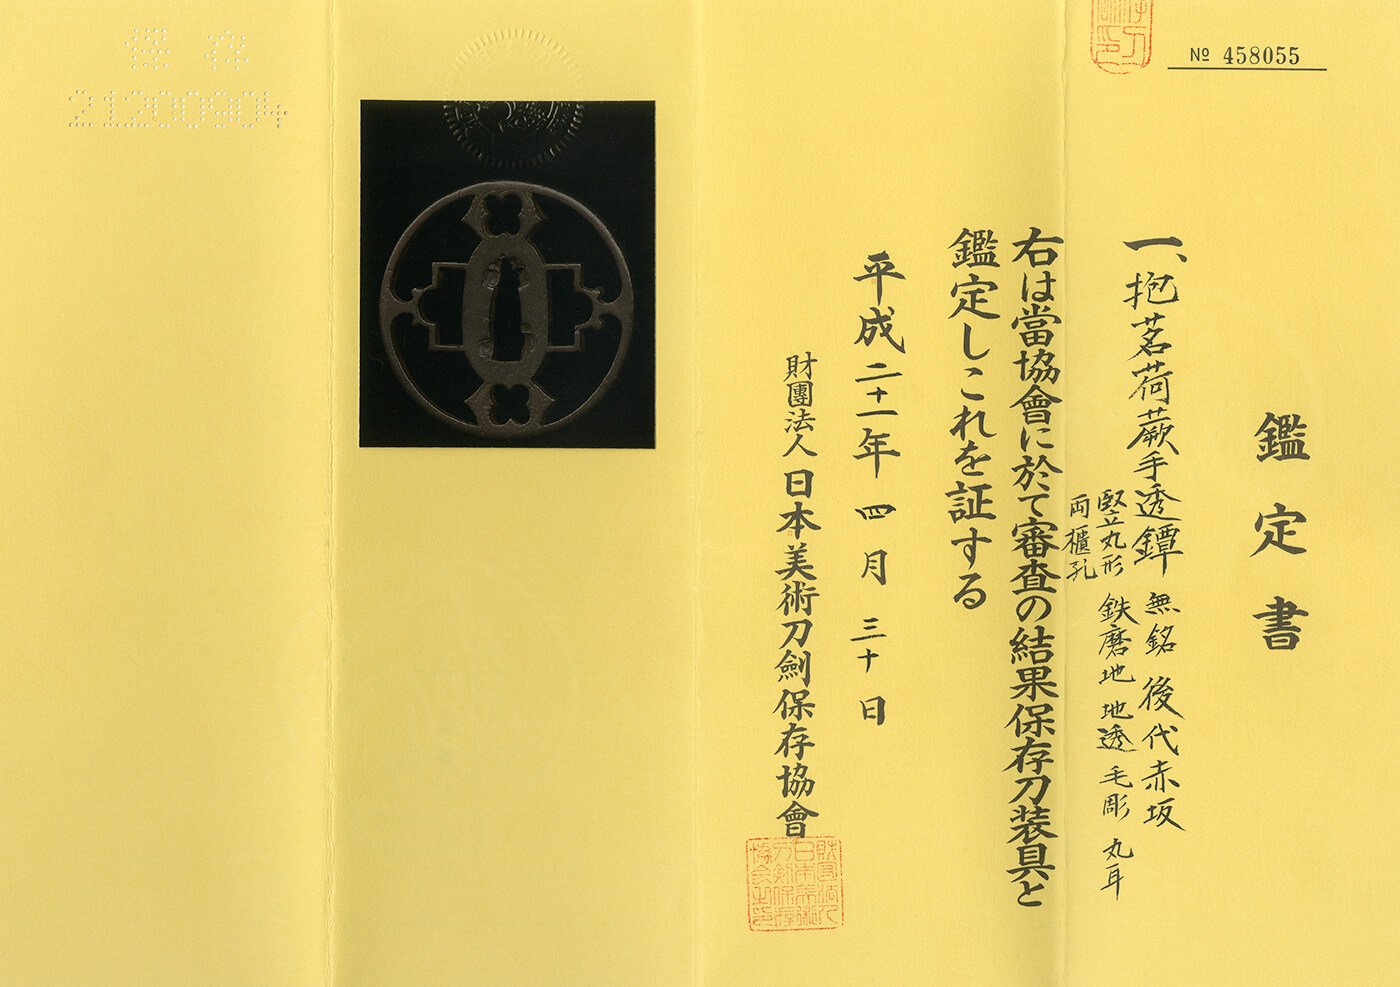 № 458055
鑑定書
一、抱茗荷蕨手透鐔 無銘 後代赤坂
竪丸形 鉄磨地 地透 毛彫 丸耳
両櫃孔
右は當協會に於て審査の結果保存刀装具と
鑑定しこれを証する
平成二十一年四月三十日
財團法人 日本美術刀劍保存協會
保存
21200904